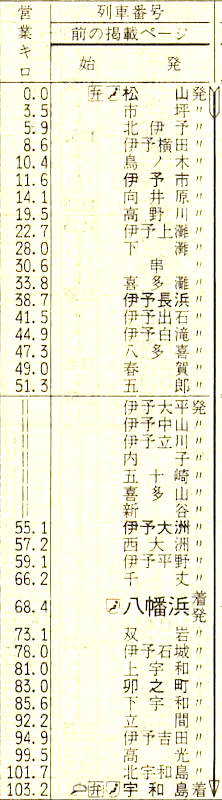 営業キロ
列車番号
前の掲載ページ
始 発
0.0 弁 松 山 発
3.5 市 坪 〃
5.9 北 伊 予 〃
8.6 伊予横田 〃
10.4 鳥 ノ 木 〃
11.6 伊 予 市 〃
14.1 向 井 原 〃
19.5 高 野 川 〃
22.7 伊予上灘 〃
28.0 下 灘 〃
30.6 串 〃
33.8 喜 多 灘 〃
38.7 伊予長浜 〃
41.5 伊予出石 〃
44.9 伊予白滝 〃
47.3 八 多 喜 〃
49.0 春 賀 〃
51.3 五 郎 〃
‖ 伊予大平 発
‖ 伊予中山 〃
‖ 伊予立川 〃
‖ 内 子 〃
‖ 五 十 崎 〃
‖ 喜 多 山 〃
‖ 新 谷 〃
55.1 伊予大洲 〃
57.2 西 大 洲 〃
59.1 伊予平野 〃
66.2 千 丈 〃
68.4 八幡浜 着発
73.1 双 岩 〃
78.0 伊予石城 〃
81.0 上 宇 和 〃
83.0 卯 之 町 〃
85.6 下 宇 和 〃
92.2 立 間 〃
94.9 伊予吉田 〃
99.5 高 光 〃
101.7 北宇和島 〃
103.2 弁 宇 和 島 着